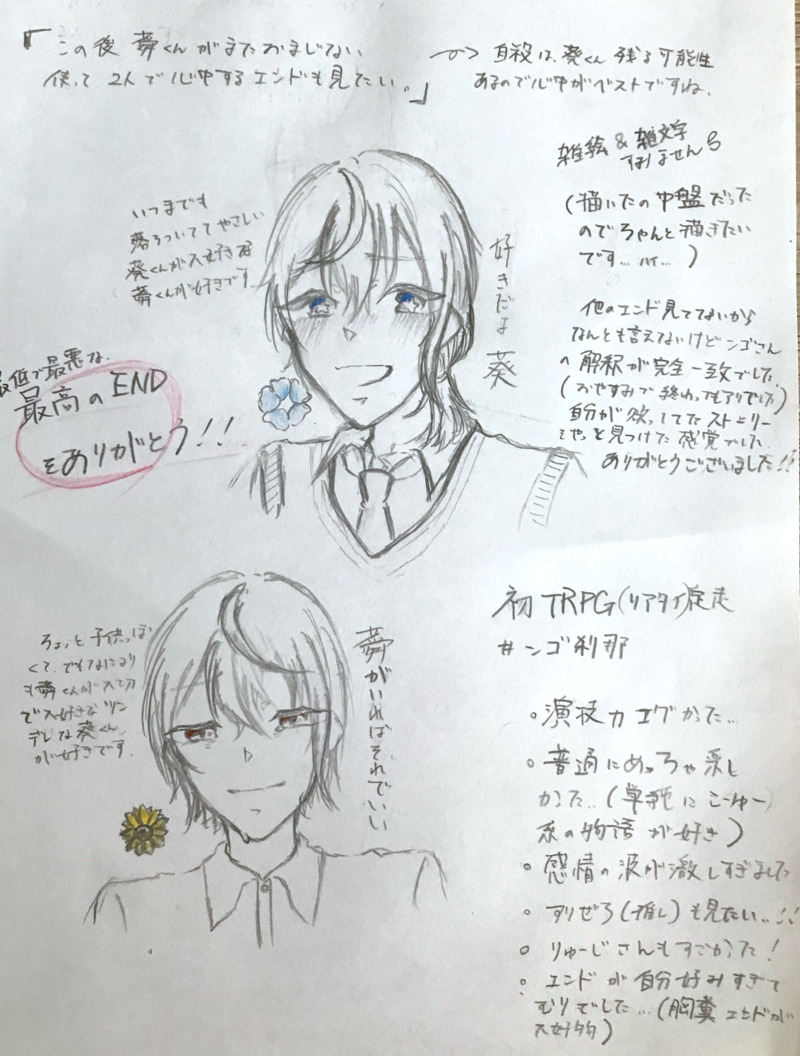 「この後 夢くんがまたおまじない
使って2人で心中するエンドも見たい。」
自殺は、葵くん残る可能性
あるので心中がベストですね。
雑絵&雑文字
すみません
(描いたの中盤だった
のでちゃんと描きたい
です…
いつまでも
落ちついててやさしい
葵くんが大好きな
夢くんが好きです
好きだよ 葵
他のエンド見てないから
なんとも言えないけどンゴさん
の解釈が完全一致でした
(おやすみで終わってもアリでした)
自分が欲してたストーリー
をやっと見つけた感覚でした
ありがとうございました!!
最低で最悪な、
最高のEND
をありがとう!!
初TRPG(リアタイ)完走
#ンゴ刹那
ちょっと子供っぽ
くて、でもなにより
も夢くんが大切
で大好きなツン
デレな葵くん
が好きです。
夢がいればそれでいい
○演技力エグかった…
○普通にめっちゃ楽し
かった…(単純にこーゆー
系の物語が好き)
○感情の波が激しすぎました
○すりぜろ(推し)も見たい…!!
○りゅーじさんもすごかった!
○エンドが自分好みすぎて
むりでした…(胸糞エンドが
大好物)